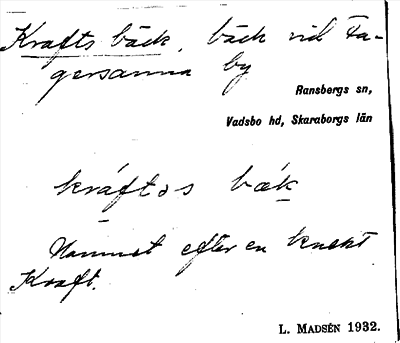 Krafts bäck, bäck vid Fa-
gersanna by
Ransbergs sn,
Vadsbo hd, Skaraborgs län
kráftəs bæk
Namnet efter en knekt
Kraft.
L. MADSÉN 1932.